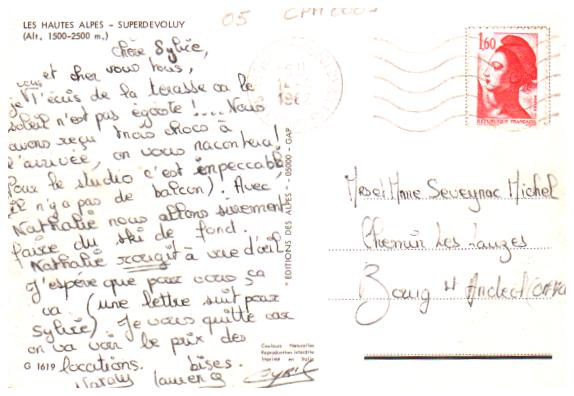 LES HAUTES ALPES - SUPERDEVOLUY
(Alt. 1500-2500 m.)
05
chère Sylvie,
et cher vous tous,
je t'écris de la terasse ou le
soleil n'est pas égoïste !.... Nous
avons reçu choco à
l'arrivée, on vous racontera!
Pour le studio c'est impeccable
(il n'y a pas de balcon). Avec
Nathalie nous allons sûrement
faire du ski de fond.
Nathalie rougit à vue d'œil
J'espère que pour vous ça
va. (une lettre suit pour
Sylvie) Je vous quitte car
on va voir le prix des
locations. bises.
laurence
1,60
REPUBLIQUE FRANÇAISE
"EDITIONS DES ALPES" - 05000 - GAP
Mr et Mme Seveyrac Michel
Chemin Les Lauzes
Bourg St Andéol
Couleurs Naturelles
Reproduction interdite
Imprimé en Italie
G 1619